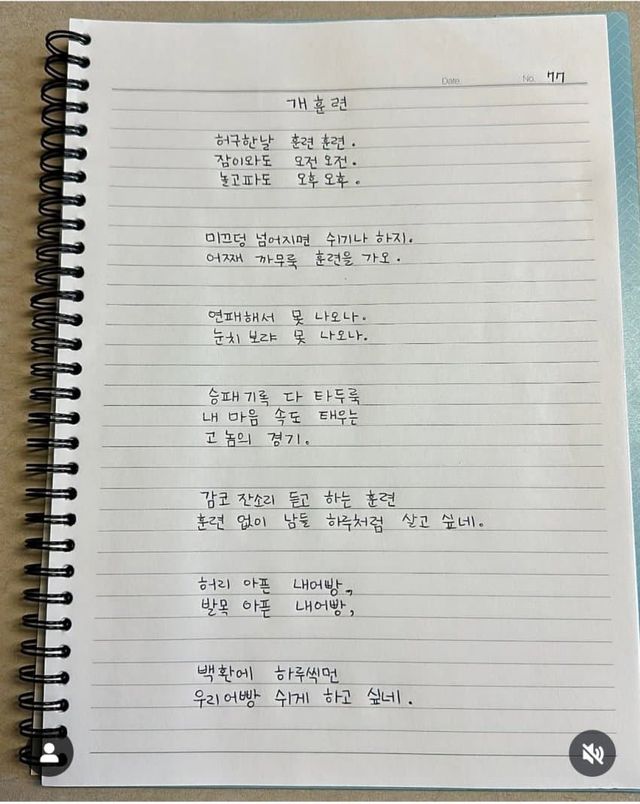 Date
No. 77
개훈련
허구한날 훈련 훈련.
잠이와도 오전 오전.
놀고파도 오후 오후.
미끄덩 넘어지면 쉬기나 하지.
어째 까무룩 훈련을 가오.
연패해서 못 나오나.
눈치 보랴 못 나오나.
승패기록 다 타두룩
내 마음 속도 태우는
고 놈의 경기.
감코 잔소리 듣고 하는 훈련
훈련 없이 남들 하루처럼 살고 싶네.
허리 아픈 내어빵,
발목 아픈 내어빵,
백환에 하루씩먼
우리어빵 쉬게 하고 싶네.